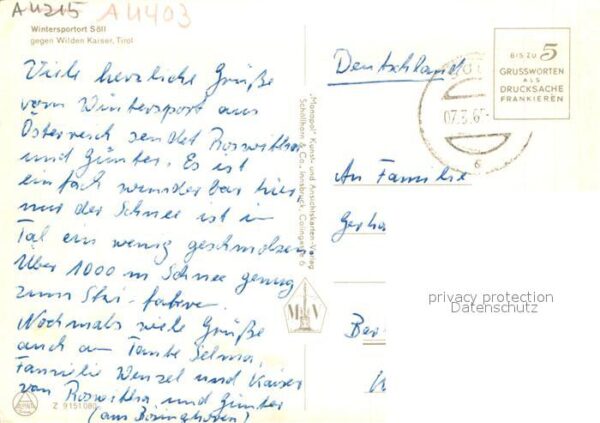 A 4215 A 4403
Wintersportort Söll
gegen Wilden Kaiser, Tirol
Viele herzliche Grüße
vom Wintersport aus
Österreich sendet Roswitha
und Günter. Es ist
einfach wunderbar hier,
nur der Schnee ist im
Tal ein wenig geschmolzen.
Über 1000 m Schnee genug
zum Ski-fahren.
Nochmals viele Grüße
auch an Tante Selma,
Familie Wenzel und Kaiser
von Roswitha und Günter
(aus Böninghoven)
Z 9151080
"Monopol" Kunst- und Ansichtskarten-Verlag
Schöllhorn & Co., Innsbruck, Colingasse 6
M V
Deutschland
BIS ZU 5
GRUSSWORTEN
ALS
DRUCKSACHE
FRANKIEREN
An Familie
Gerha
Ber
privacy protection
Datenschutz